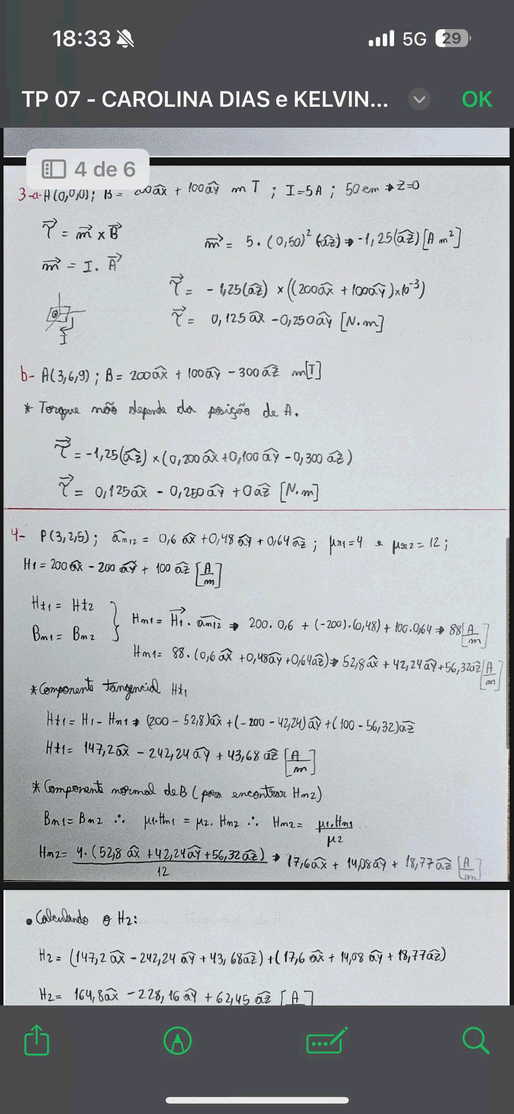 18:33
5G 29
TP 07 - CAROLINA DIAS e KELVIN... OK
4 de 6
3-a- A(0,0,0); B = 200âx + 100ây mT ; I=5A ; 50cm → z=0
τ⃗ = m⃗ x B⃗
m⃗ = 5.(0,50)² (âz) → -1,25(âz) [A m²]
m⃗ = I. A⃗
τ⃗ = -1,25(âz) x ((200âx + 100ây)x10⁻³)
τ⃗ = 0,125âx - 0,250ây [N.m]
I
b- A(3,6,9) ; B = 200âx + 100ây - 300âz m[T]
* Torque não depende da posição de A.
τ⃗ = -1,25(âz) x (0,200âx + 0,100ây - 0,300âz)
τ⃗ = 0,125âx - 0,250ây + 0âz [N.m]
4- P(3,2,5) ; ân12 = 0,6 âx + 0,48ây + 0,64âz ; μr1=4 e μr2=12 ;
H1 = 200âx - 200ây + 100âz [A/m]
Ht1 = Ht2
Bn1 = Bn2
Hn1 = H⃗1 . ân12 → 200.0,6 + (-200).(0,48) + 100.0,64 → 88 [A/m]
Hn1 = 88.(0,6âx + 0,48ây + 0,64âz) → 52,8âx + 42,24ây + 56,32âz [A/m]
* Componente tangencial Ht1
Ht1 = H1 - Hn1 → (200 - 52,8)âx + (-200 - 42,24)ây + (100 - 56,32)âz
Ht1 = 147,2âx - 242,24ây + 43,68âz [A/m]
* Componente normal de B (para encontrar Hn2)
Bn1 = Bn2 ∴ μ1.Hn1 = μ2.Hn2 ∴ Hn2 = μ1.Hn1/μ2
Hn2 = 4.(52,8âx + 42,24ây + 56,32âz)/12 → 17,6âx + 14,08ây + 18,77âz [A/m]
• Calculando o H2:
H2 = (147,2âx - 242,24ây + 43,68âz) + (17,6âx + 14,08ây + 18,77âz)
H2 = 164,8âx - 228,16ây + 62,45âz [A]